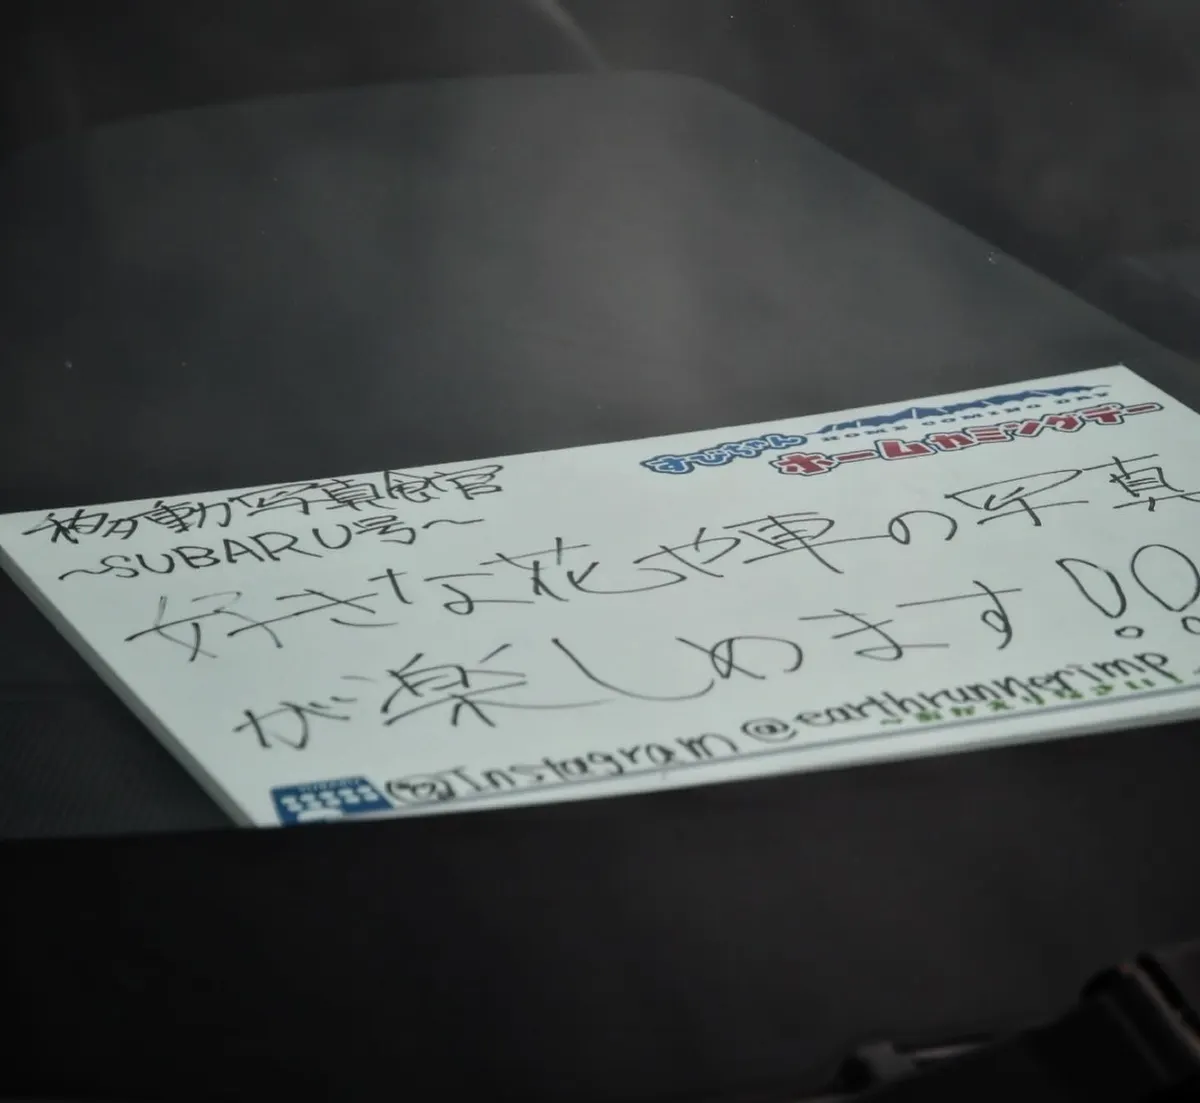 すびちゃん
HOME COMING DAY
ホームカミングデー
移動写真館
～SUBARU号～
好きな花や車の写真
が楽しめます!!
Instagram @earthrunnerimp
～おかえりなさい！～